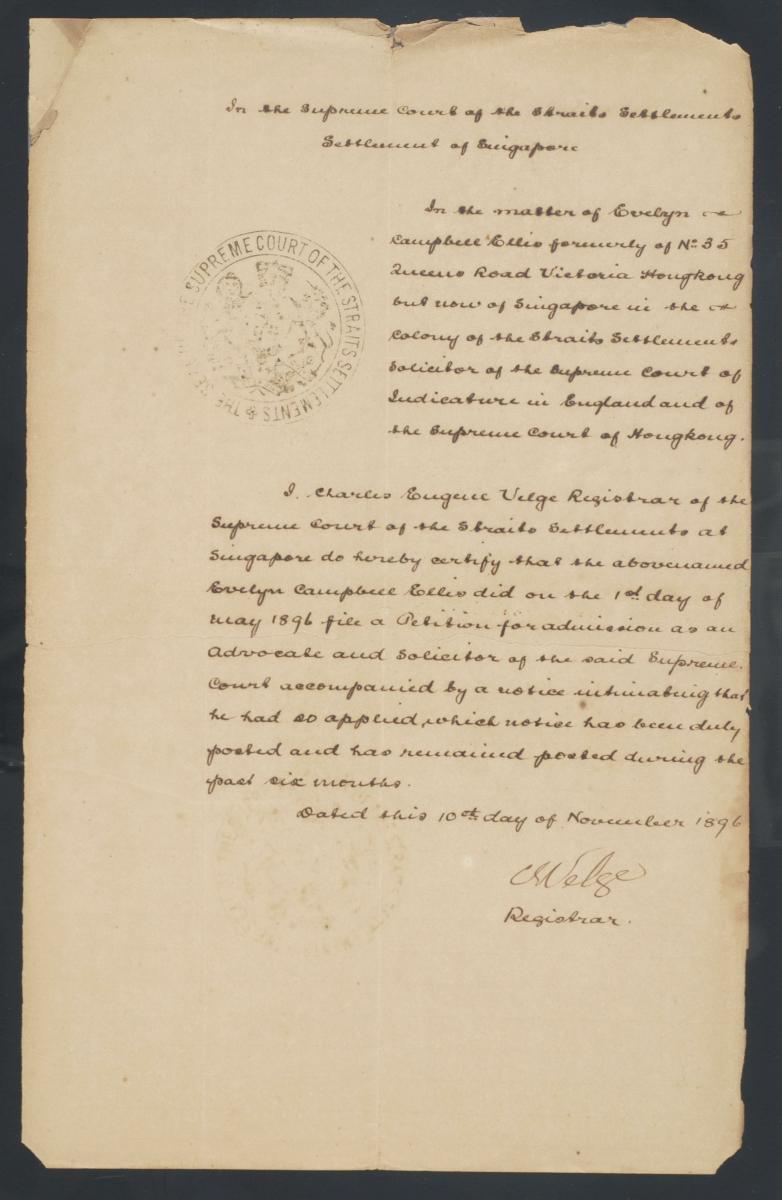 In the Supreme Court of the Straits Settlements
Settlement of Singapore
In the matter of Evelyn
Campbell Ellis formerly of No. 35
Queens Road Victoria Hongkong
but now of Singapore in the
Colony of the Straits Settlements
Solicitor of the Supreme Court of
Judicature in England and of
the Supreme Court of Hongkong.
THE SEAL OF THE SUPREME COURT OF THE STRAITS SETTLEMENTS
I. Charles Eugene Velge Registrar of the
Supreme Court of the Straits Settlements at
Singapore do hereby certify that the abovenamed
Evelyn Campbell Ellis did on the 1st day of
May 1896 file a Petition for admission as an
Advocate and Solicitor of the said Supreme
Court accompanied by a notice intimating that
he had so applied, which notice has been duly
posted and has remained posted during the
past six months.
Dated this 10th day of November 1896
CE Velge
Registrar.